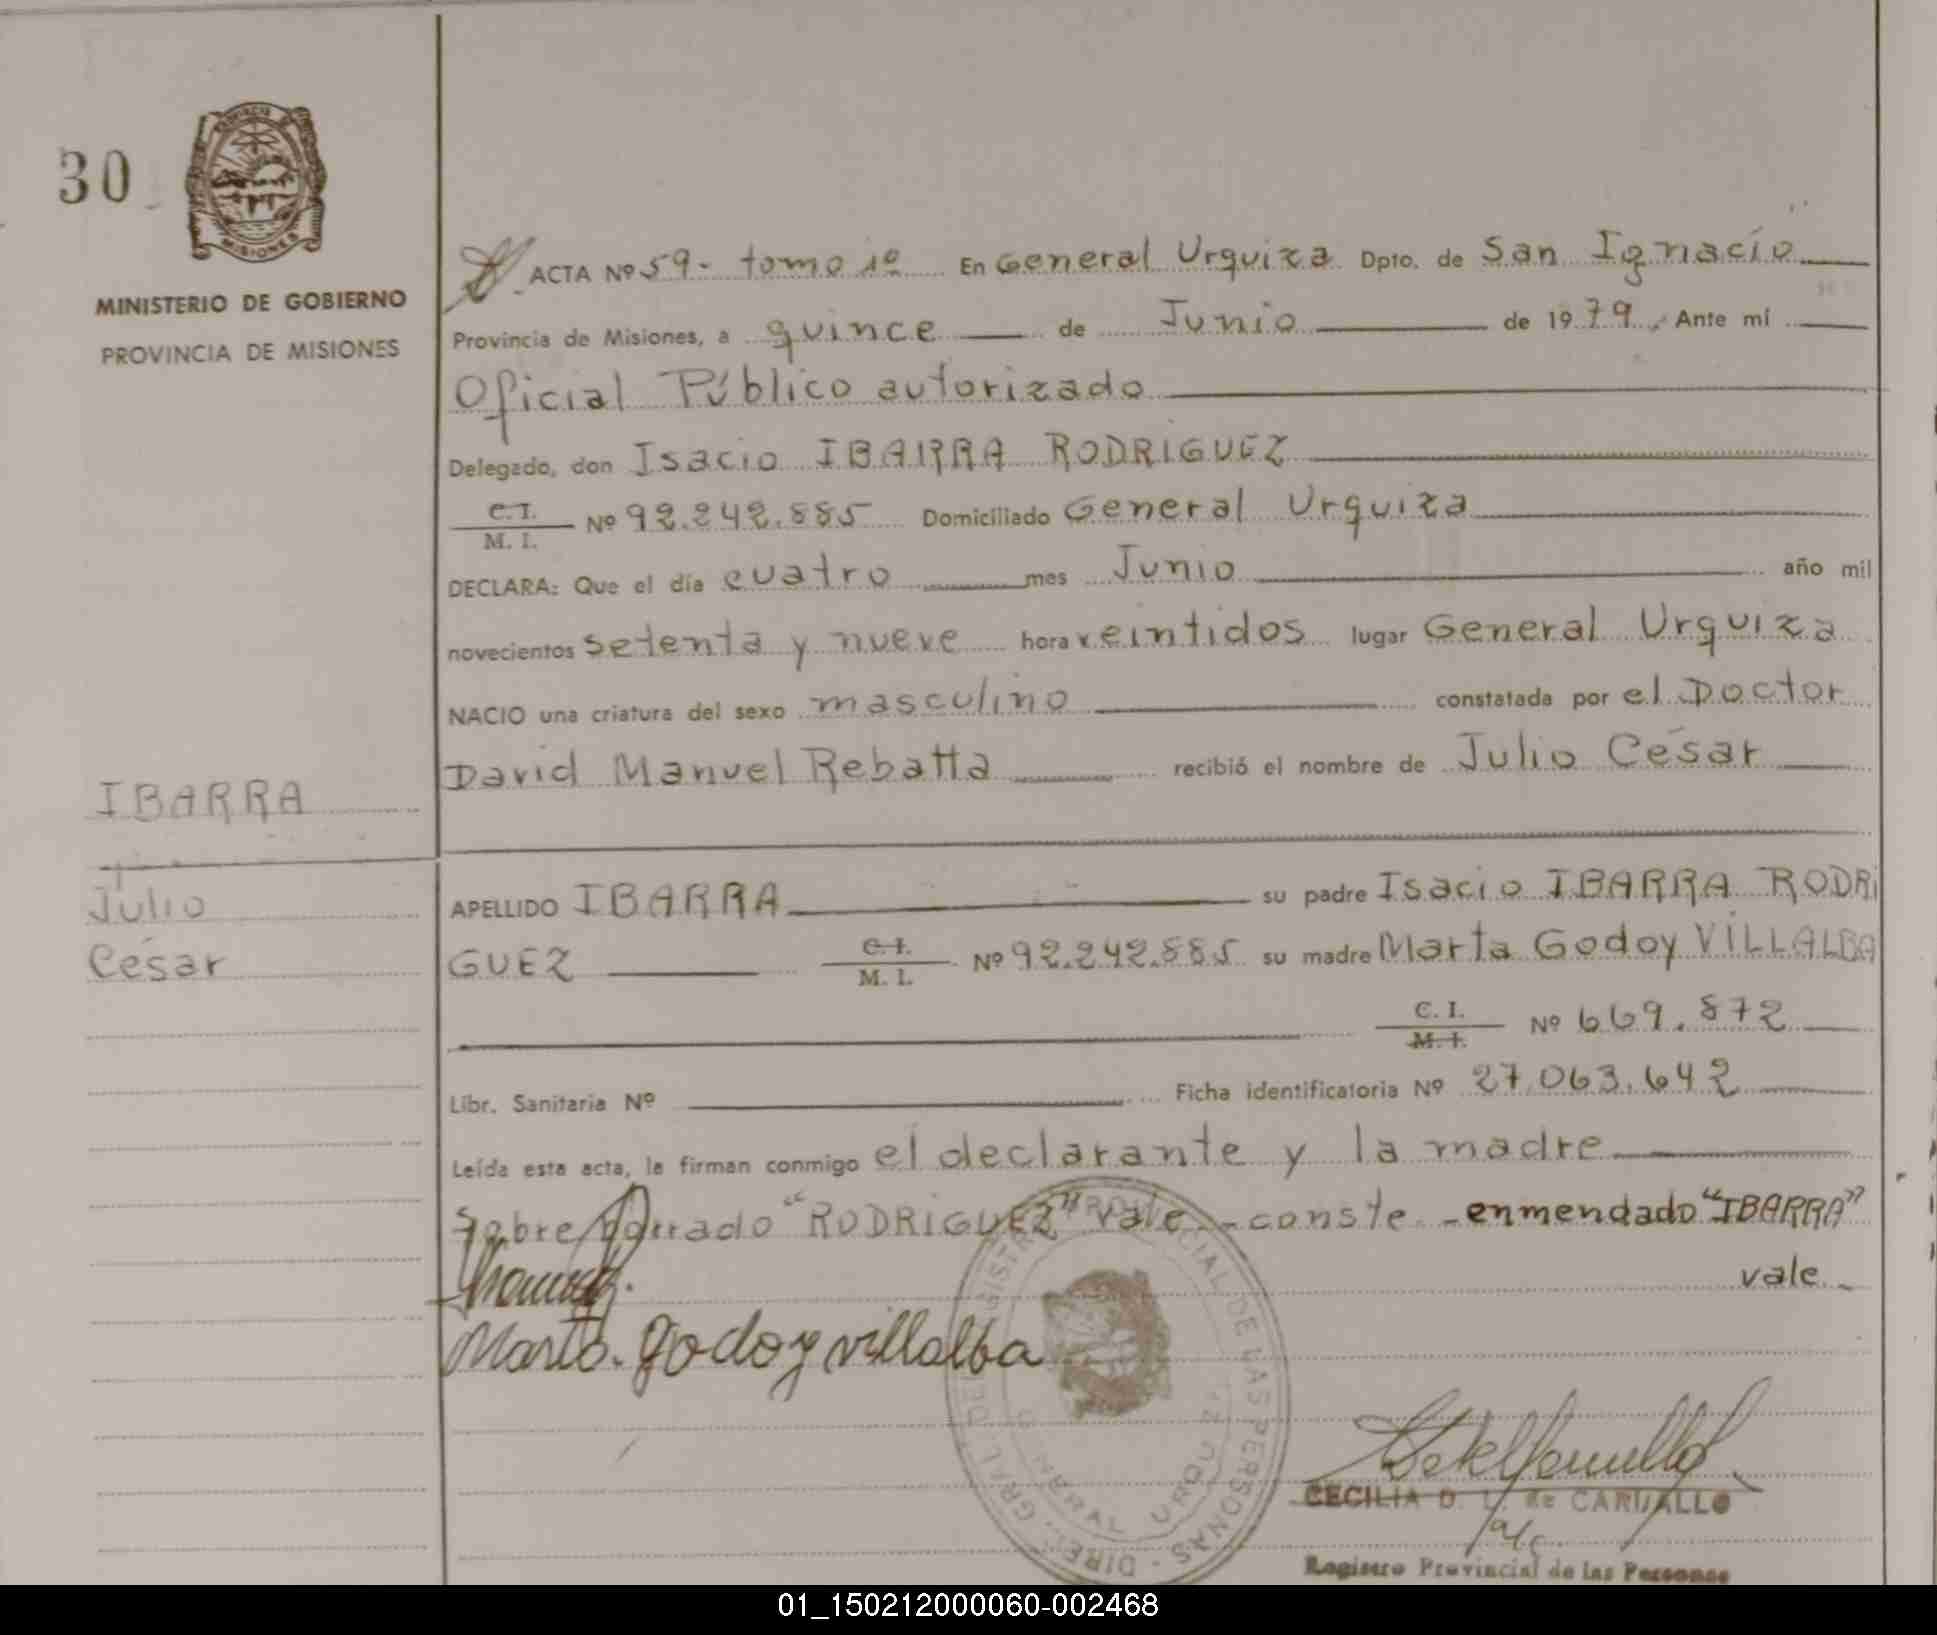 30
PROVINCIA DE
MISIONES
MINISTERIO DE GOBIERNO
PROVINCIA DE MISIONES
IBARRA
Julio
César
ACTA Nº 59- tomo 1º En General Urquiza Dpto. de San Ignacio
Provincia de Misiones, a quince de Junio de 1979. Ante mí
Oficial Público autorizado
Delegado, don Isacio IBARRA RODRIGUEZ
C.I.
M. I. Nº 92.242.885 Domiciliado General Urquiza
DECLARA: Que el día cuatro mes Junio año mil
novecientos setenta y nueve hora veintidos lugar General Urquiza
NACIO una criatura del sexo masculino constatada por el Doctor
David Manuel Rebatta recibió el nombre de Julio César
APELLIDO IBARRA su padre Isacio IBARRA RODRI
GUEZ C.I.
M. I. Nº 92.242.885 su madre Marta Godoy VILLALBA
C. I.
M. I. Nº 669.872
Libr. Sanitaria Nº Ficha identificatoria Nº 27.063.642
Leída esta acta, la firman conmigo el declarante y la madre
Sobre borrado "RODRIGUEZ" vale - conste - enmendado "IBARRA"
vale -
Marta. Godoy villalba
DIREC. GRAL. DEL REGISTRO PROVINCIAL DE LAS PERSONAS
GENERAL URQUIZA
CECILIA D. L. de CARVALLO
Registro Provincial de las Personas
01_150212000060-002468